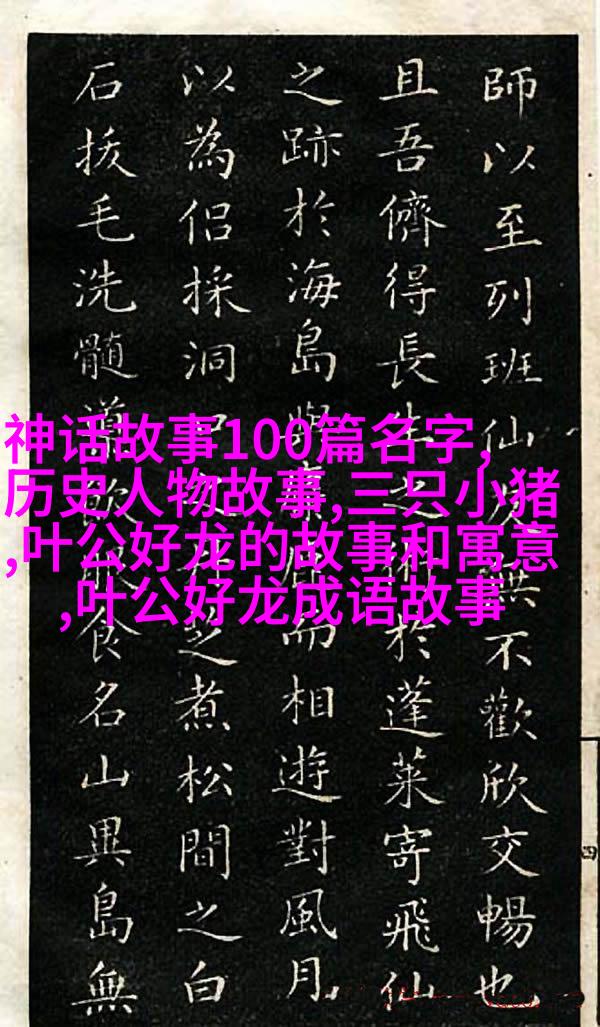 神话故事100篇名字,
历史人物故事,三只小猪
,叶公好龙的故事和寓意
,叶公好龙成语故事
師以至列班仙不歡欣交暢也
且吾儕得長生之術於蓬萊寄飛仙
之跡於海島而相遊對風月
以為侶採洞芝煮松間之白
石拔毛洗髓食名山異島無
四